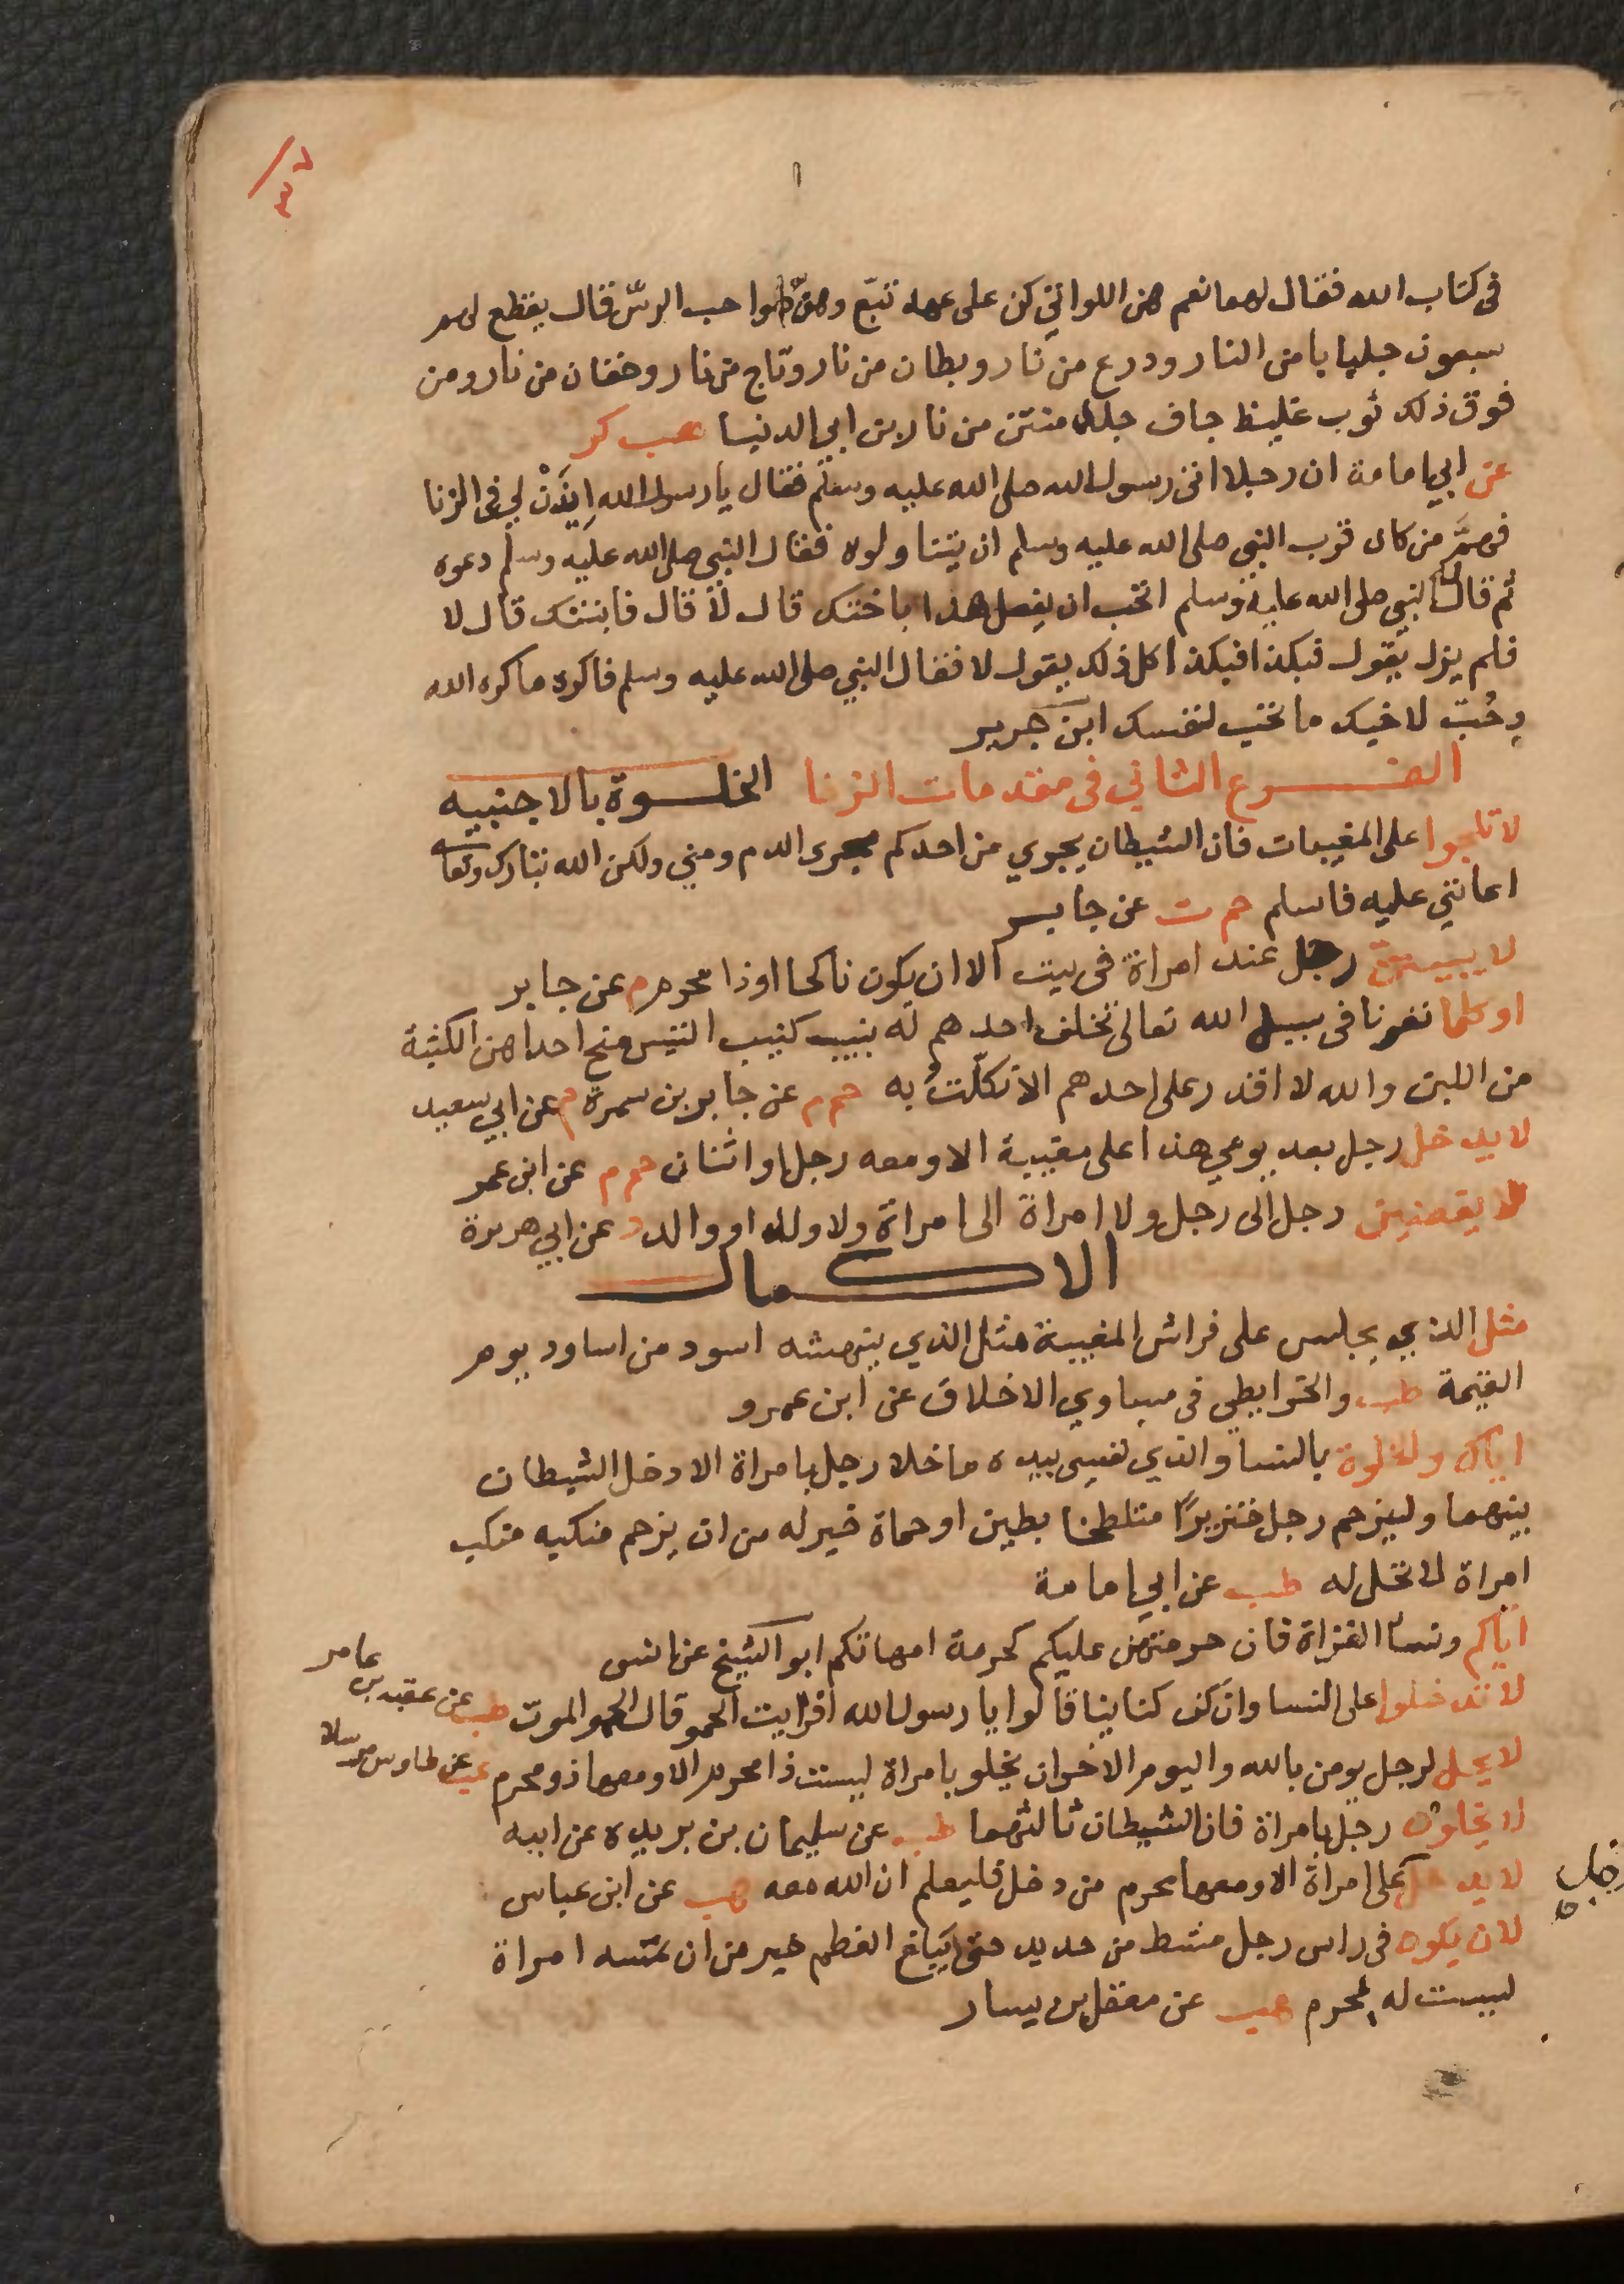 ٣٧
فى كتاب الله فقال لهما نعم هن اللواتي كن على عهد تبّع وهنّ صواحب الرسّ قال يقطع لهم
سبعون جلبابا من النار ودرع من نار وبطان من نار وتاج من نار وخفان من نار ومن
فوق ذلك ثوب غليظ جاف جلد منتن من نار ابن ابي الدنيا هب كر
عن ابي امامة ان رجلا اتى رسول الله صلى الله عليه وسلم فقال يا رسول الله ايذن لي فى الزنا
فهمّ من كان قرب النبي صلى الله عليه وسلم ان يتناولوه فقال النبي صلى الله عليه وسلم دعوه
ثم قال النبي صلى الله عليه وسلم اتحب ان يفعل هذا باختك قال لا قال فابنتك قال لا
فلم يزل يقول فبكذا فبكذا كل ذلك يقول لا فقال النبي صلى الله عليه وسلم فاكره ما كره الله
وحُبّ لاخيك ما تحب لنفسك ابن جرير
الفرع الثاني فى مقدمات الزنا الخلوة بالاجنبيه
لا تلجوا على المغيبات فان الشيطان يجري من احدكم مجرى الدم ومني ولكن الله تبارك وتعا
اعانني عليه فاسلم حم ت عن جابر
لا يبيتن رجل عند امراة فى بيت الا ان يكون ناكحا او ذا محرم م عن جابر
او كلما نفرنا فى سبيل الله تعالى تخلف احدهم له نبيب كنبيب التيس منح احداهن الكثبة
من اللبن والله لا اقدر على احدهم الا نكلت به حم م عن جابر بن سمرة م عن ابي سعيد
لا يدخل رجل بعد يومي هذا على مغيبة الا ومعه رجل او اثنان حم م عن ابن عمر
لا يفضين رجل الى رجل ولا امراة الى امراة ولا ولد او والد د عن ابي هريرة
الاكمال
مثل الذي يجلس على فراش المغيبة مثل الذي ينهشه اسود من اساود يوم
القيمة طب والخرايطي فى مساوي الاخلاق عن ابن عمرو
اياك والخلوة بالنسا والذي نفسي بيده ما خلا رجل بامراة الا دخل الشيطان
بينهما وليزحم رجل خنزيرًا متلطخا بطين او حماة خير له من ان يزحم منكبه منكب
امراة لا تحل له طب عن ابي امامة
اياكم ونسا الغزاة فان حرمتهن عليكم كحرمة امهاتكم ابو الشيخ عن انس
لا تدخلوا على النسا وان كن كناينا قالوا يا رسول الله افرايت الحمو قال الحمو الموت طب عن عقبه بن عامر
لا يحل لرجل يومن بالله واليوم الاخر ان يخلو بامراة ليست ذا محرم الا ومعها ذو محرم عب عن طاوس مرسلا
لا يخلون رجل بامراة فان الشيطان ثالثهما طب عن سليمان بن بريده عن ابيه
لا يدخل على امراة الا ومعها محرم من دخل فليعلم ان الله معه هب عن ابن عباس
لان يكون فى راس رجل مشط من حديد حتى يبلغ العظم خير من ان تمسه امراة
ليست له بمحرم هب عن معقل بن يسار